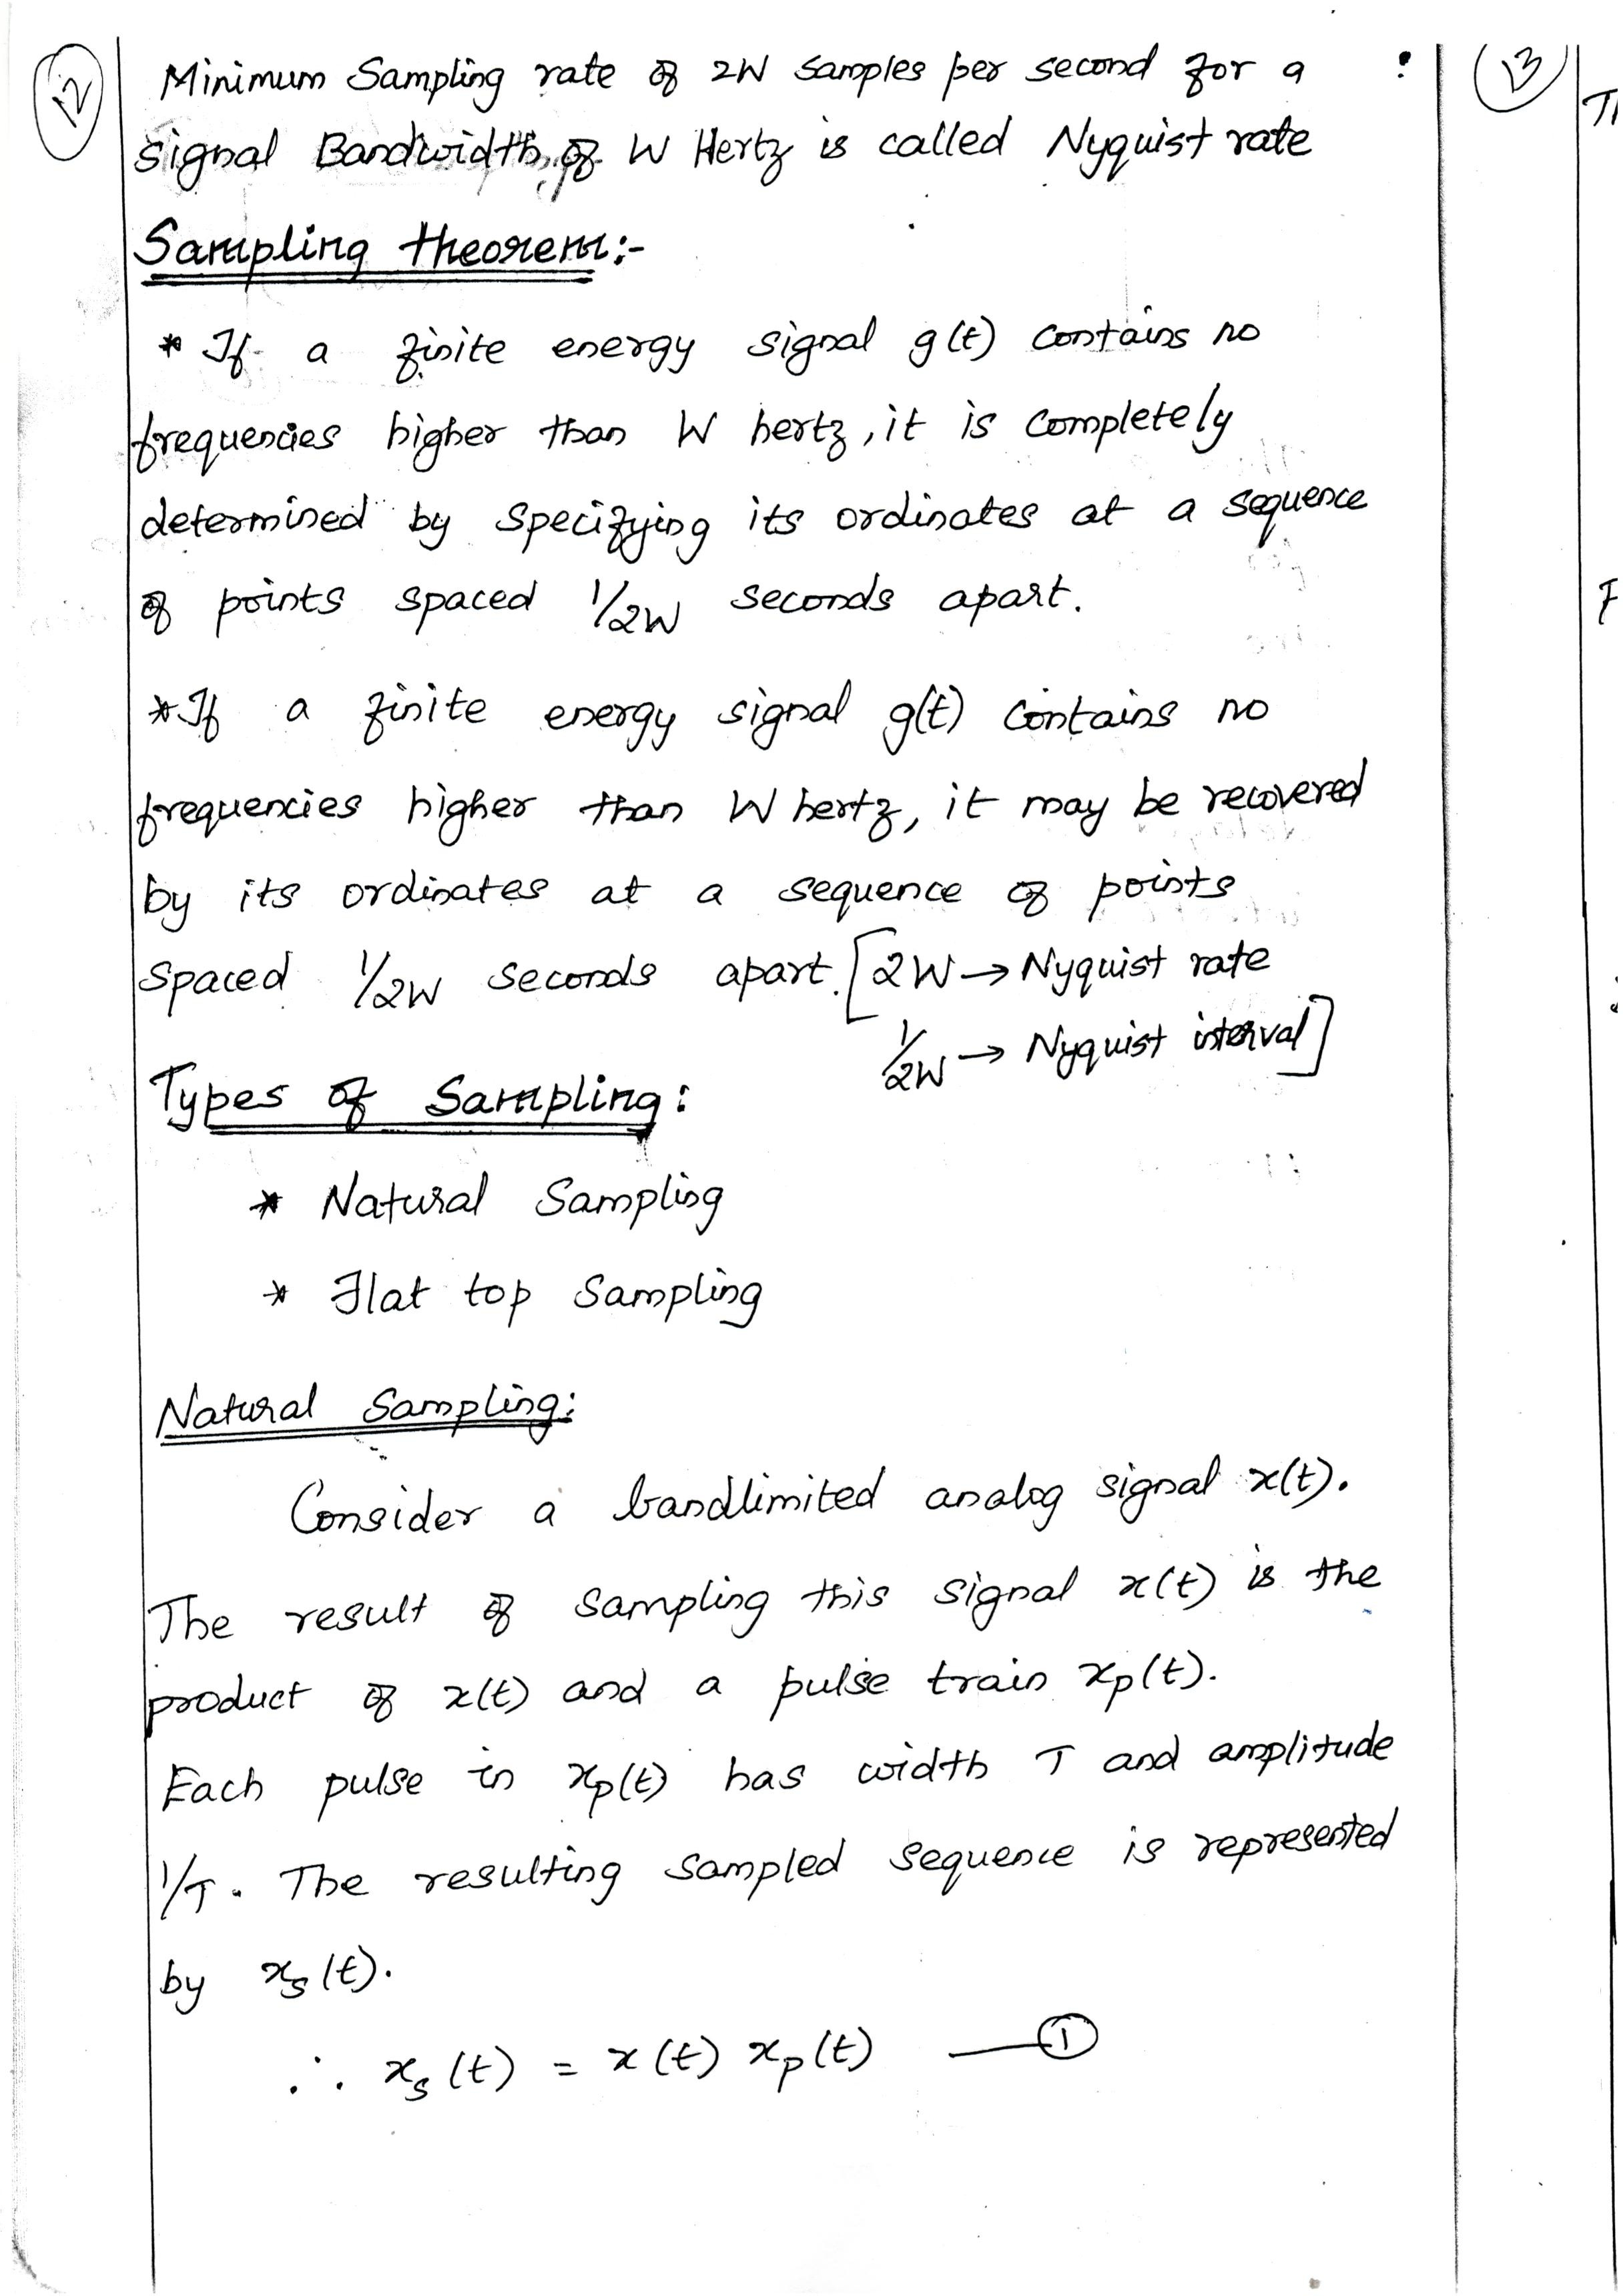 12
Minimum Sampling rate of 2W samples per second for a
signal Bandwidth of W Hertz is called Nyquist rate
Sampling theorem:-
* If a finite energy signal g(t) contains no
frequencies higher than W hertz, it is completely
determined by specifying its ordinates at a sequence
of points spaced 1/2W seconds apart.
* If a finite energy signal g(t) contains no
frequencies higher than W hertz, it may be recovered
by its ordinates at a sequence of points
spaced 1/2W seconds apart. [2W → Nyquist rate
1/2W → Nyquist interval]
Types of Sampling:
* Natural Sampling
* Flat top Sampling
Natural Sampling:
Consider a bandlimited analog signal x(t).
The result of sampling this signal x(t) is the
product of x(t) and a pulse train xp(t).
Each pulse in xp(t) has width T and amplitude
1/T. The resulting sampled sequence is represented
by xs(t).
∴ xs(t) = x(t) xp(t) — ①
13